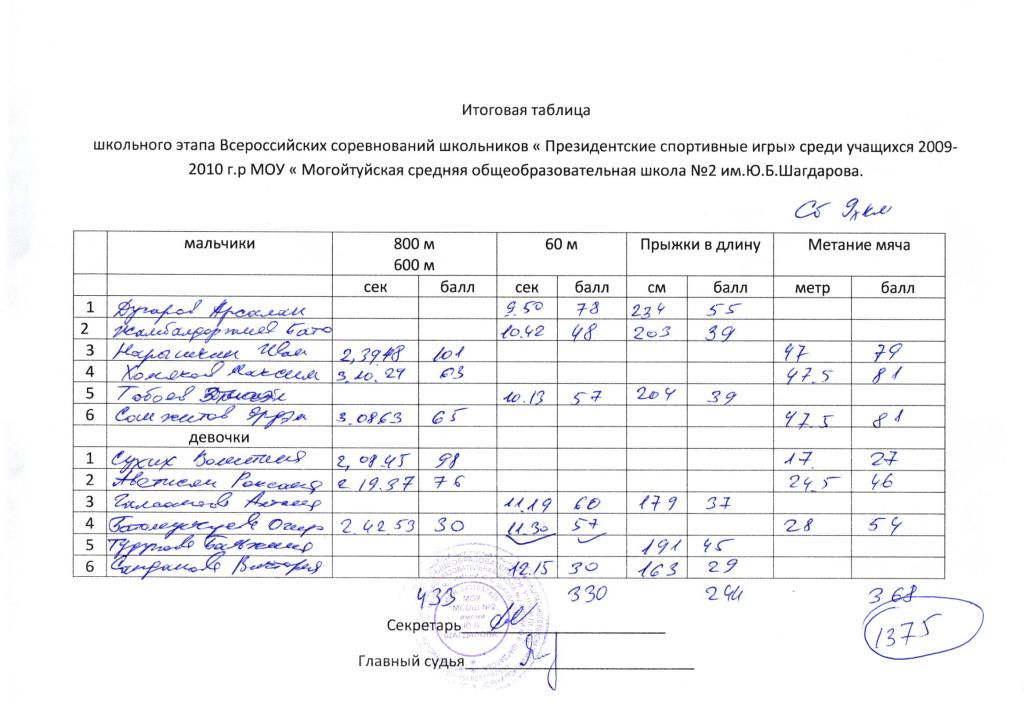 Итоговая таблица
школьного этапа Всероссийских соревнований школьников « Президентские спортивные игры» среди учащихся 2009-
2010 г.р МОУ « Могойтуйская средняя общеобразовательная школа №2 им.Ю.Б.Шагдарова.
Сб
мальчики 800 м 60 м Прыжки в длину Метание мяча
600 м
сек балл сек балл см балл метр балл
1 Дугаров Арсалан 9.50 78 234 55
2 Жамбалдоржиев Бато 10.42 48 203 39
3 Нарышкин Иван 2,3948 101 47 79
4 Хомяков Максим 3.10.24 63 47.5 81
5 Тобоев 10.13 57 204 39
6 Сомжитов 3.0863 65 47.5 81
девочки
1 Сухих Валентина 2,08.45 98 17. 27
2 Аветисян Роксана 2 19.37 76 24,5 46
3 11.19 60 179 37
4 2.42 53 30 11.30 57 28 54
5 191 45
6 Виктория 12.15 30 163 29
433 330 244 368
1375
МОУ
МСОШ №2
имени
Ю.Б.
ШАГДАРОВА
Секретарь
Главный судья